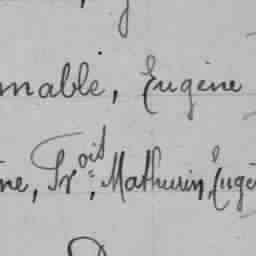 mable, Eugène
ne, Fr.ois, Mathurin, Eugè